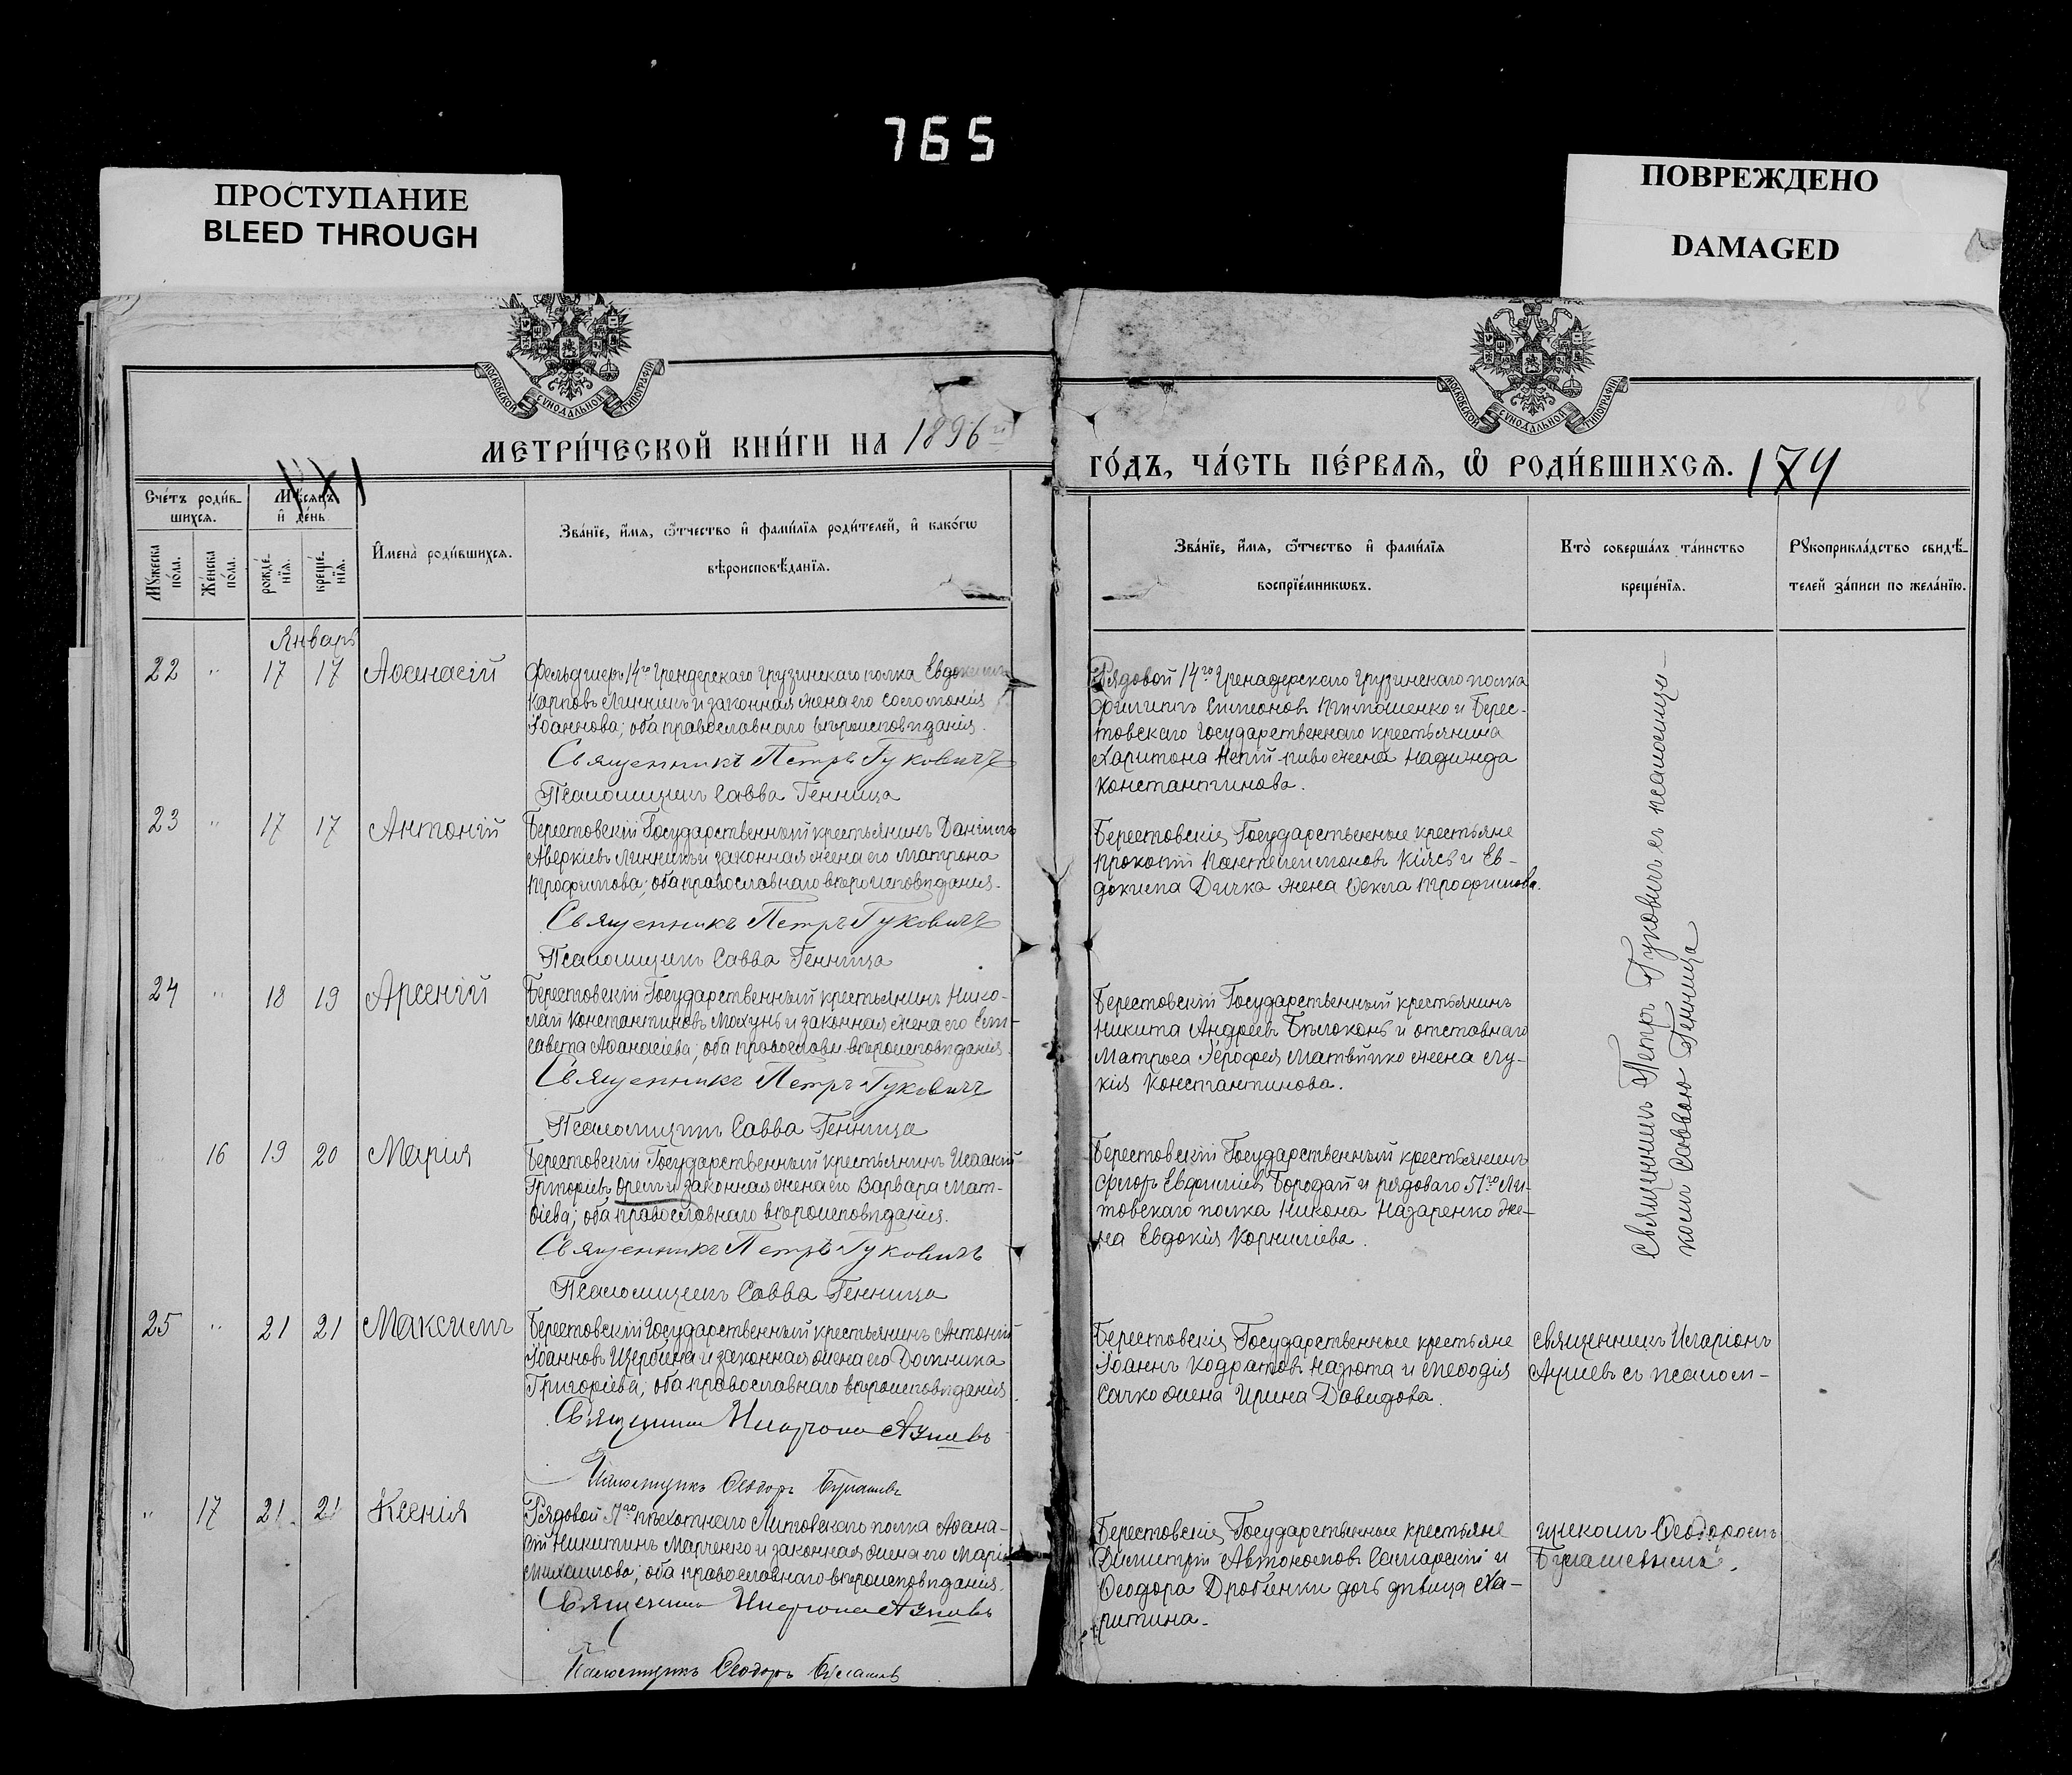 765
ПРОСТУПАНИЕ
BLEED THROUGH
ПОВРЕЖДЕНО
DAMAGED
МОСКОВСКОЙ СУНОДАЛЬНОЙ ТИПОГРАФІИ
МОСКОВСКОЙ СУНОДАЛЬНОЙ ТИПОГРАФІИ
МЕТРИ́ЧЕСКОЙ КНИ́ГИ НА 1896 го
ГО́ДЪ, ЧА́СТЬ ПЕ́РВАѦ, Ѡ҆ РОДИ́ВШИХСѦ. 174
Сче́тъ роди́в-
шихсѧ.
Мѣ́сѧцъ
и҆ де́нь.
Мꙋ́жеска по́ла.
Же́нска по́ла.
рожде́-
нїѧ.
креще́-
нїѧ.
И҆мена̀ роди́вшихсѧ.
Зва́нїе, и҆́мѧ, ѻ҆́тчество и҆ фами́лїѧ роди́телей, и҆ како́гѡ
вѣроисповѣ́данїѧ.
Зва́нїе, и҆́мѧ, ѻ҆́тчество и҆ фами́лїѧ
воспрїе́мникѡвъ.
Кто̀ соверша́лъ та́инство
креще́нїѧ.
Рꙋкоприкла́дство свидѣ́-
телей за́писи по жела́нїю.
Январь
22 " 17 17 Аѳанасій
Фельдшеръ 14го Грендерскаго Грузинскаго полка Евдокимъ
Карповъ Линникъ и законная жена его Соломонія
Іоаннова; оба православнаго вѣроисповѣданія.
Священникъ Петръ Гуковичъ
Псаломщикъ Савва Генница
Рядовой 14го Гренадерскаго Грузинскаго полка
Филиппъ Симеоновъ Тимошенко и Берес-
товскаго Государственнаго крестьянина
Харитона жена Надежда
Константинова.
23 " 17 17 Антоній
Берестовскій Государственный крестьянинъ Даніилъ
Аверкіевъ Линникъ и законная жена его Матрона
Трофимова; оба православнаго вѣроисповѣданія.
Священникъ Петръ Гуковичъ
Псаломщикъ Савва Генница
Берестовскія Государственные крестьяне
Прокопій Пантелеимоновъ Кіясъ и Ев-
докима Дичка жена Ѳекла Трофимова.
24 " 18 19 Арсеній
Берестовскій Государственный крестьянинъ Нико-
лай Константиновъ Мохунь и законная жена его Ели-
савета Аѳанасіева; оба православн. вѣроисповѣданія.
Священникъ Петръ Гуковичъ
Псаломщикъ Савва Генница
Берестовскій Государственный крестьянинъ
Никита Андреевъ Бѣлоконь и отставнаго
Матроса Іерофея Матвѣйко жена Лу-
кія Константинова.
16 19 20 Марія
Берестовскій Государственный крестьянинъ Исаакій
Григоріевъ Орелъ и законная жена его Варвара Мат-
ѳіева; оба православнаго вѣроисповѣданія.
Священникъ Петръ Гуковичъ
Псаломщикъ Савва Генница
Берестовскій Государственный крестьянинъ
Флоръ Евфиміевъ Бородай и рядоваго 51го Ли-
товскаго полка Никона Назаренко же-
на Евдокія Корниліева.
Священникъ Петръ Гуковичъ съ псаломщи-
комъ Саввою Генница
25 " 21 21 Максимъ
Берестовскій Государственный крестьянинъ Антоній
Іоанновъ Щербина и законная жена его Домника
Григоріева; оба православнаго вѣроисповѣданія.
Священникъ Иларіонъ
Псаломщикъ Ѳеодоръ
Берестовскія Государственные крестьяне
Іоаннъ Кодратовъ Назюта и Меѳодія
Сачко жена Ирина Давидова.
священникъ Иларіонъ
съ псалом-
" 17 21 21 Ксенія
Рядовой пѣхотнаго Литовскаго полка Аѳана-
сій Никитинъ Марченко и законная жена его Марія
Михаилова; оба православнаго вѣроисповѣданія.
Священникъ Иларіонъ
Псаломщикъ Ѳеодоръ
Берестовскіе Государственные крестьяне
Димитрій Автономовъ Самарскій и
Ѳеодора Дробенки дочь дѣвица Ха-
ритина.
щикомъ Ѳеодоромъ